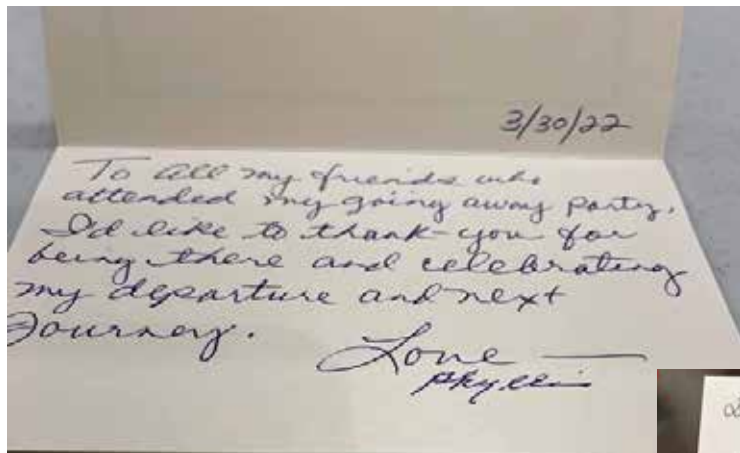 3/30/22
To all my friends who
attended my going away party,
I'd like to thank-you for
being there and celebrating
my departure and next
Journey.
Love —
Phyllis